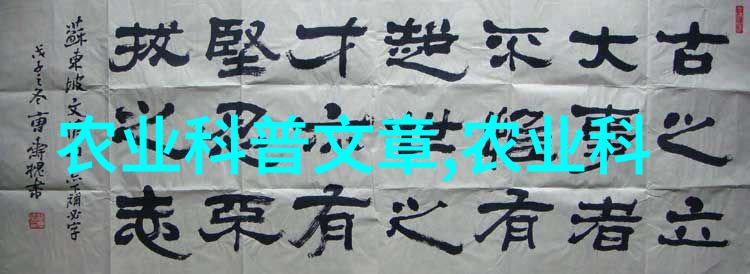 古之立
大事者
不惟有
超世之
才亦有
堅忍不
拔之志
蘇東坡文 下漏必字
戊子之冬曹壽槐書
农业科普文章,农业科